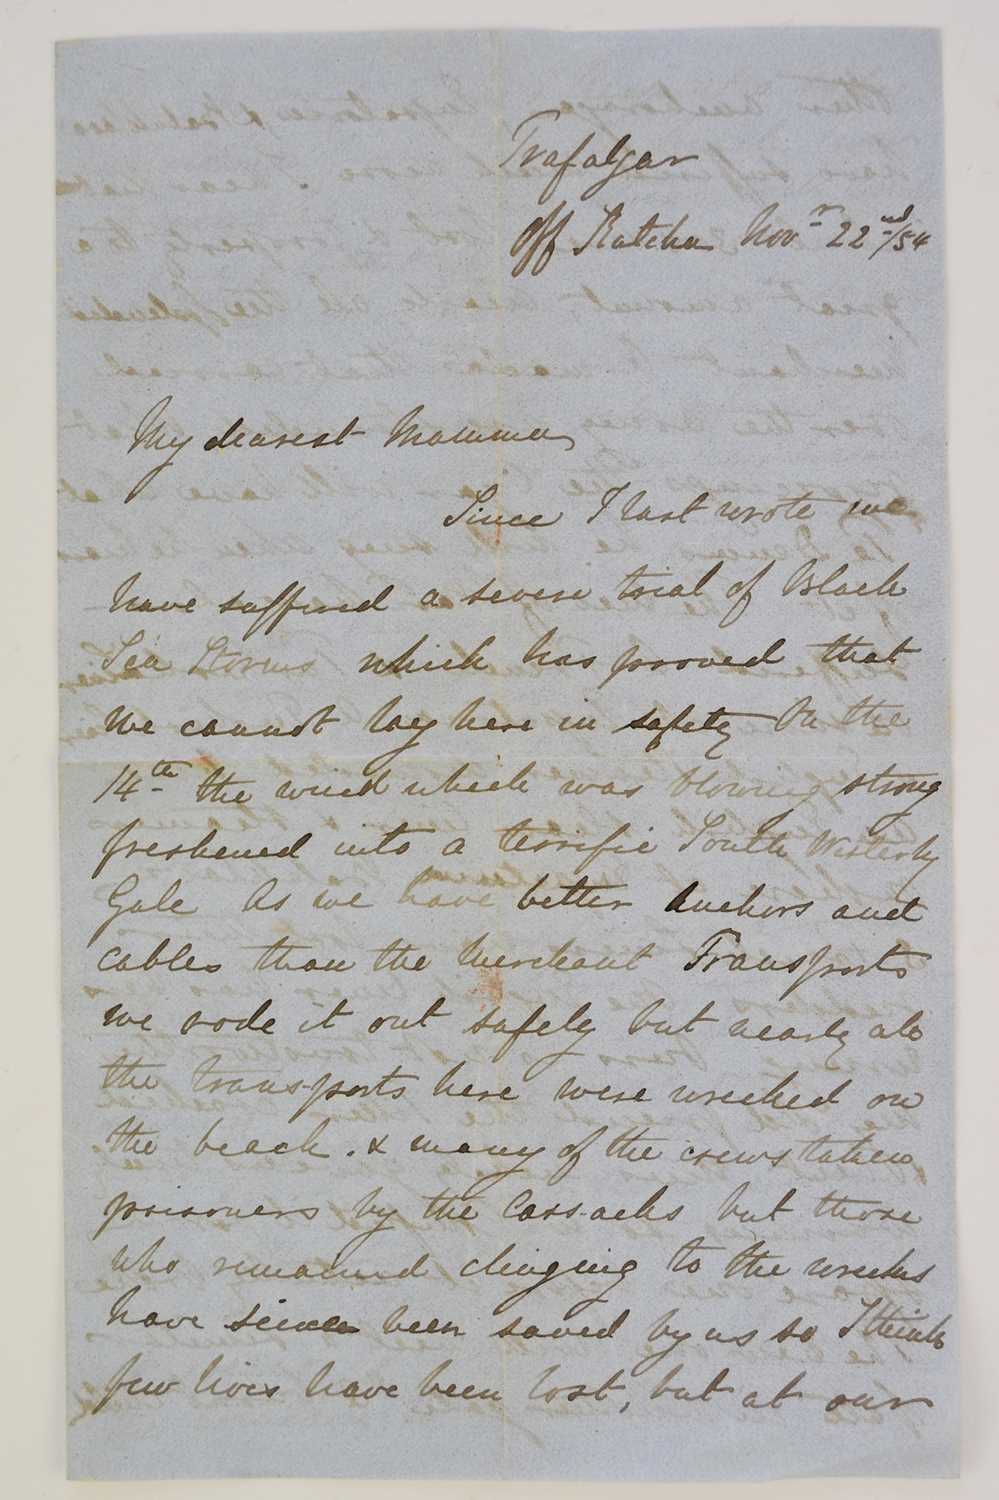 Trafalgar
Off Katcha Novr 22nd/54
My dearest Mamma,
Since I last wrote we
have suffered a severe trial of Black
Sea Storms which has proved that
we cannot lay here in safety On the
14th the wind which was blowing strong
freshened into a terrific South Westerly
Gale As we have better Anchors and
cables than the Merchant Transports
we rode it out safely but nearly all
the transports here were wrecked on
the beach. & many of the crews taken
prisoners by the Cossacks but those
who remained clinging to the wrecks
have since been saved by us so I think
few lives have been lost, but at our